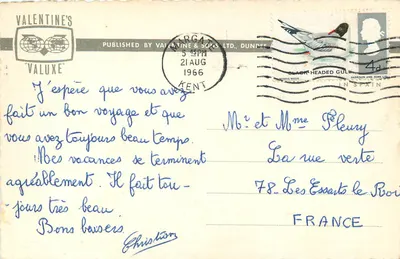 VALENTINE'S
VALUXE
PUBLISHED BY VALENTINE & SONS, LTD., DUNDEE
MARGATE
5 PM
21 AUG
1966
KENT
BLACK-HEADED GULL
4d
J'espère que vous avez
fait un bon voyage et que
vous avez toujours beau temps.
Mes vacances se terminent
agréablement. Il fait tou-
jours très beau.
Bons baisers.
Christian
Mr et Mme Fleury
La rue verte
78. Les Essarts le Roi
FRANCE